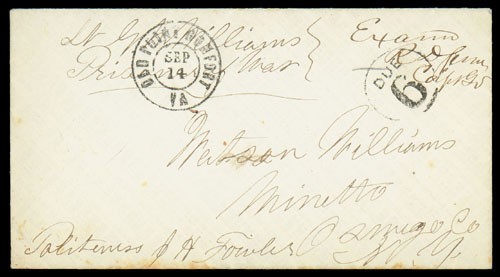 Lt. G. Williams
Prisoner of War
OLD POINT COMFORT
SEP
14
VA
Exam
DUE
6
Watson Williams
Minetto
Oswego Co
N Y
Politeness of H Fowler